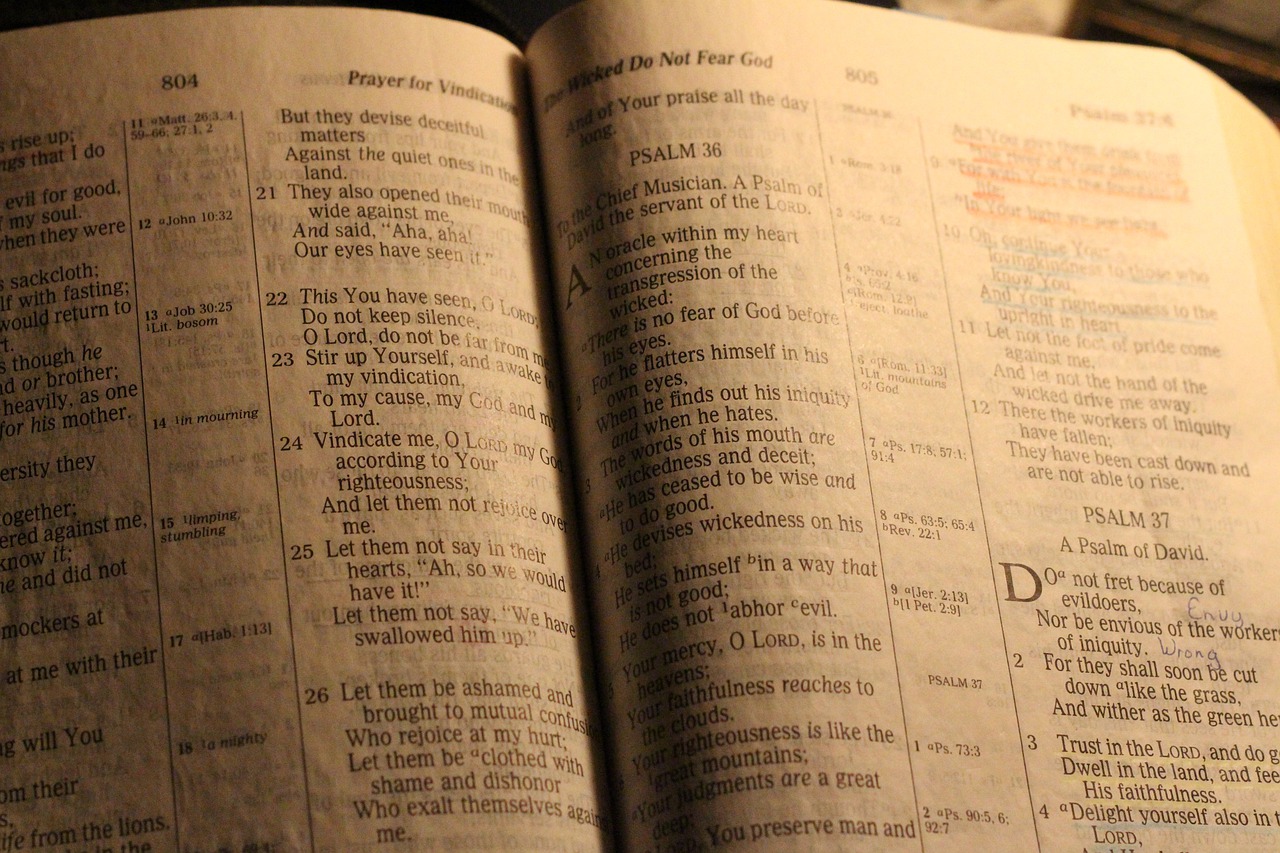 804
Prayer for Vindication
s rise up;
ngs that I do
evil for good,
my soul.
when they were
s sackcloth;
lf with fasting;
would return to
rt.
s though he
nd or brother;
heavily, as one
for his mother.
ersity they
ogether;
ered against me,
know it;
ne and did not
mockers at
at me with their
ng will You
om their
s,
ife from the lions.
11 aMatt. 26:3, 4,
59–66; 27:1, 2
12 aJohn 10:32
13 aJob 30:25
1Lit. bosom
14 1in mourning
15 1limping,
stumbling
17 a[Hab. 1:13]
18 1a mighty
But they devise deceitful
matters
Against the quiet ones in the
land.
21 They also opened their mouth
wide against me,
And said, “Aha, aha!
Our eyes have seen it.”
22 This You have seen, O LORD;
Do not keep silence.
O Lord, do not be far from me
23 Stir up Yourself, and awake to
my vindication,
To my cause, my God and my
Lord.
24 Vindicate me, O LORD my God
according to Your
righteousness;
And let them not rejoice over
me.
25 Let them not say in their
hearts, “Ah, so we would
have it!”
Let them not say, “We have
swallowed him up.”
26 Let them be ashamed and
brought to mutual confusion
Who rejoice at my hurt;
Let them be aclothed with
shame and dishonor
Who exalt themselves against
me.
The Wicked Do Not Fear God
805
Psalm 37:4
And of Your praise all the day
long.
PSALM 36
To the Chief Musician. A Psalm of
David the servant of the LORD.
AN oracle within my heart
concerning the
transgression of the
wicked:
aThere is no fear of God before
his eyes.
2 For he flatters himself in his
own eyes,
When he finds out his iniquity
and when he hates.
3 The words of his mouth are
wickedness and deceit;
aHe has ceased to be wise and
to do good.
4 aHe devises wickedness on his
bed;
He sets himself bin a way that
is not good;
He does not 1abhor cevil.
5 Your mercy, O LORD, is in the
heavens;
Your faithfulness reaches to
the clouds.
6 Your righteousness is like the
1great mountains;
aYour judgments are a great
deep;
O LORD, You preserve man and
PSALM 36
1 aRom. 3:18
3 aJer. 4:22
4 aProv. 4:16
bIs. 65:2
c[Rom. 12:9]
1reject, loathe
6 a[Rom. 11:33]
1Lit. mountains
of God
7 aPs. 17:8; 57:1;
91:4
8 aPs. 63:5; 65:4
bRev. 22:1
9 a[Jer. 2:13]
b[1 Pet. 2:9]
PSALM 37
1 aPs. 73:3
2 aPs. 90:5, 6;
92:7
And You give them drink
9 aFor with You is the fountain of
life;
bIn Your light we see light.
10 Oh, continue Your
lovingkindness to those who
know You,
And Your righteousness to the
upright in heart.
11 Let not the foot of pride come
against me,
And let not the hand of the
wicked drive me away.
12 There the workers of iniquity
have fallen;
They have been cast down and
are not able to rise.
PSALM 37
A Psalm of David.
DOa not fret because of
evildoers,
Envy
Nor be envious of the workers
of iniquity. Wrong
2 For they shall soon be cut
down alike the grass,
And wither as the green he
3 Trust in the LORD, and do g
Dwell in the land, and fee
His faithfulness.
4 aDelight yourself also in t
LORD,